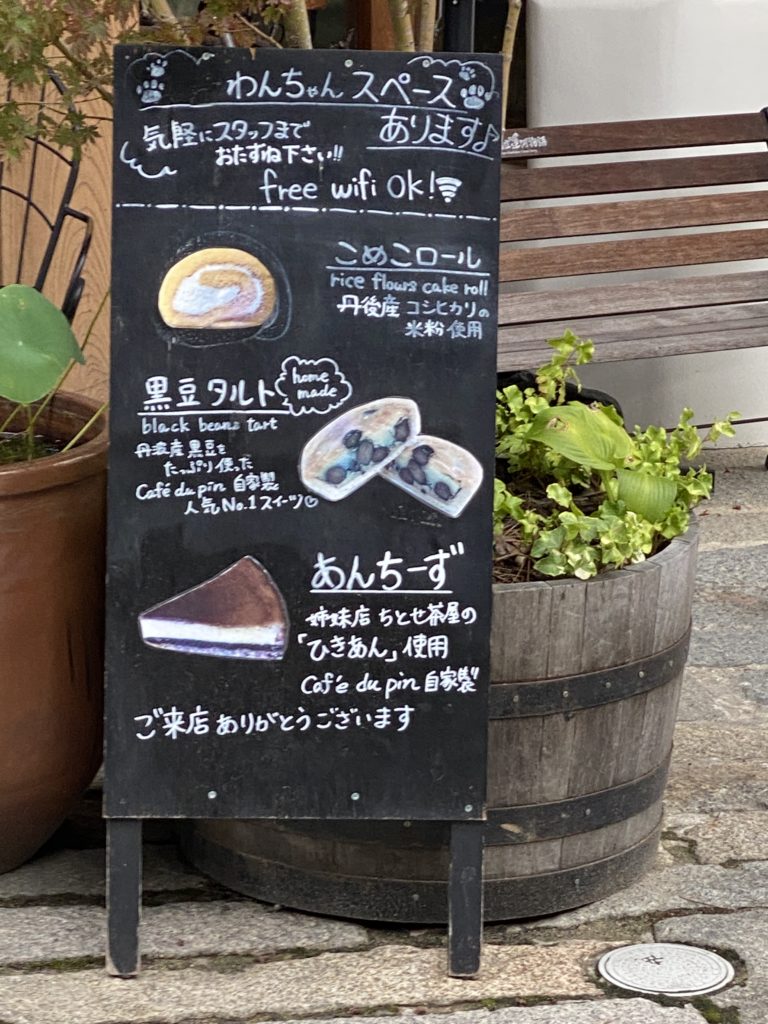 わんちゃん スペース
あります♪
気軽にスタッフまで
おたずね下さい!!
free wifi OK!
こめこロール
rice flours cake roll
丹後産 コシヒカリの
米粉 使用
黒豆タルト
home
made
black beans tart
丹波産 黒豆を
たっぷり使った
Café du pin 自家製
人気No.1スイーツ♡
あんちーず
姉妹店 ちとせ茶屋の
「ひきあん」使用
Café du pin 自家製
ご来店ありがとうございます